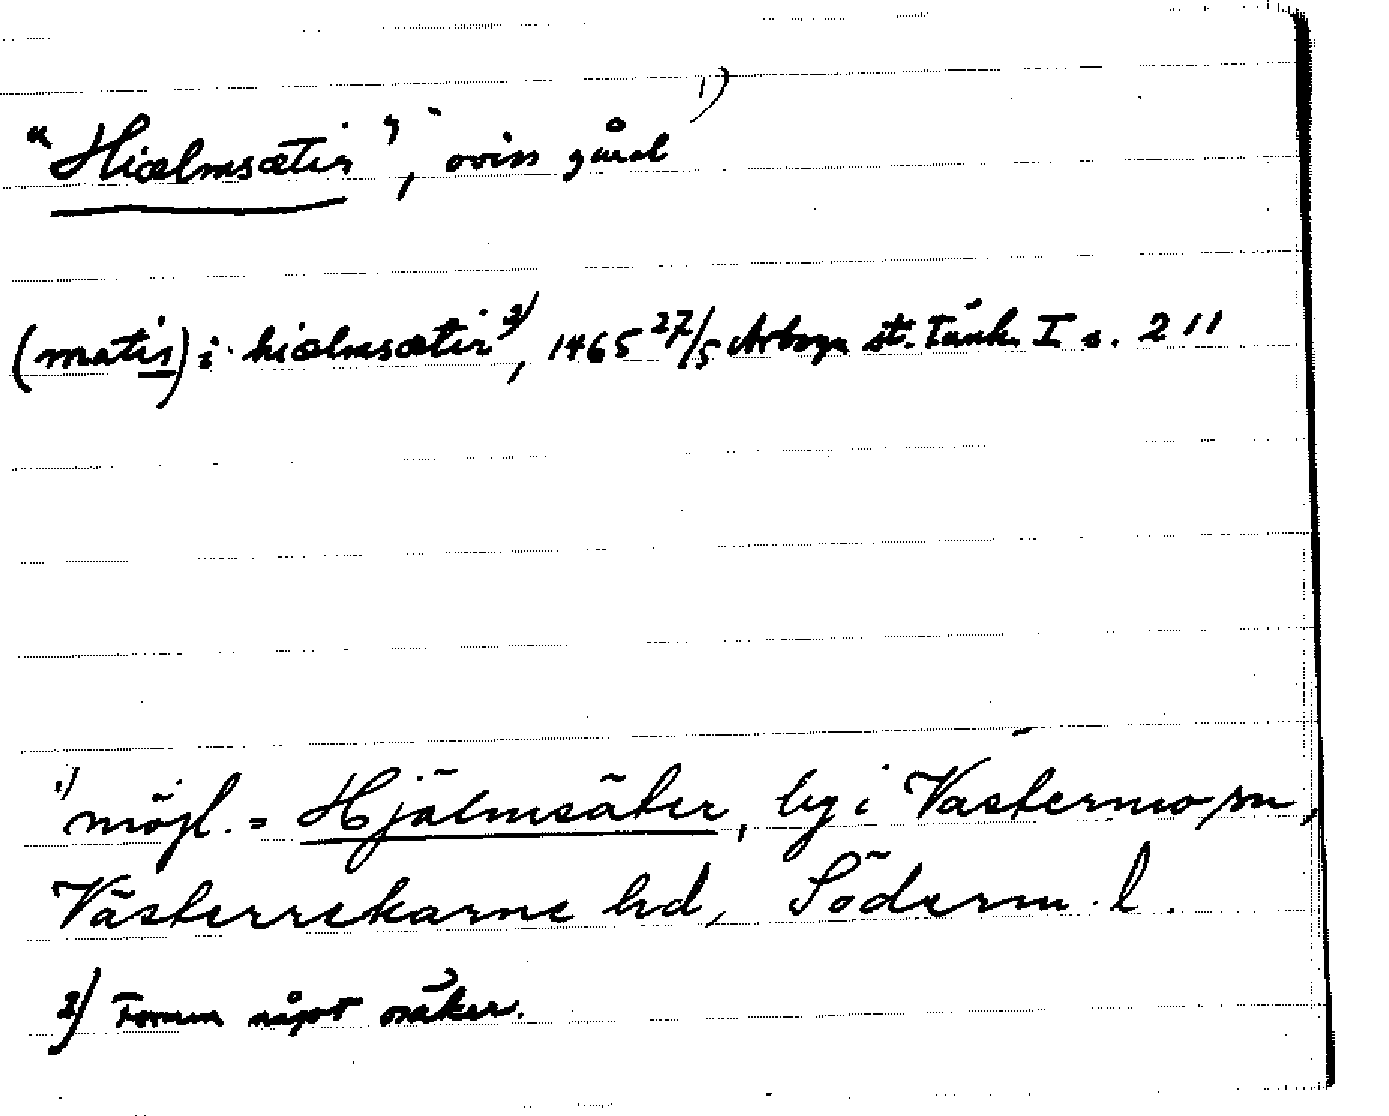 "Hiælmsætir", oviss gård ¹)
(matis) i hiælmsætir ²), 1465 27/5 Arboga st. Tänk. I s. 211
¹) möjl. = Hjälmsäter, by i Västermo sn,
Västerrekarne hd, Söderm. l.
2) Formen något osäker.